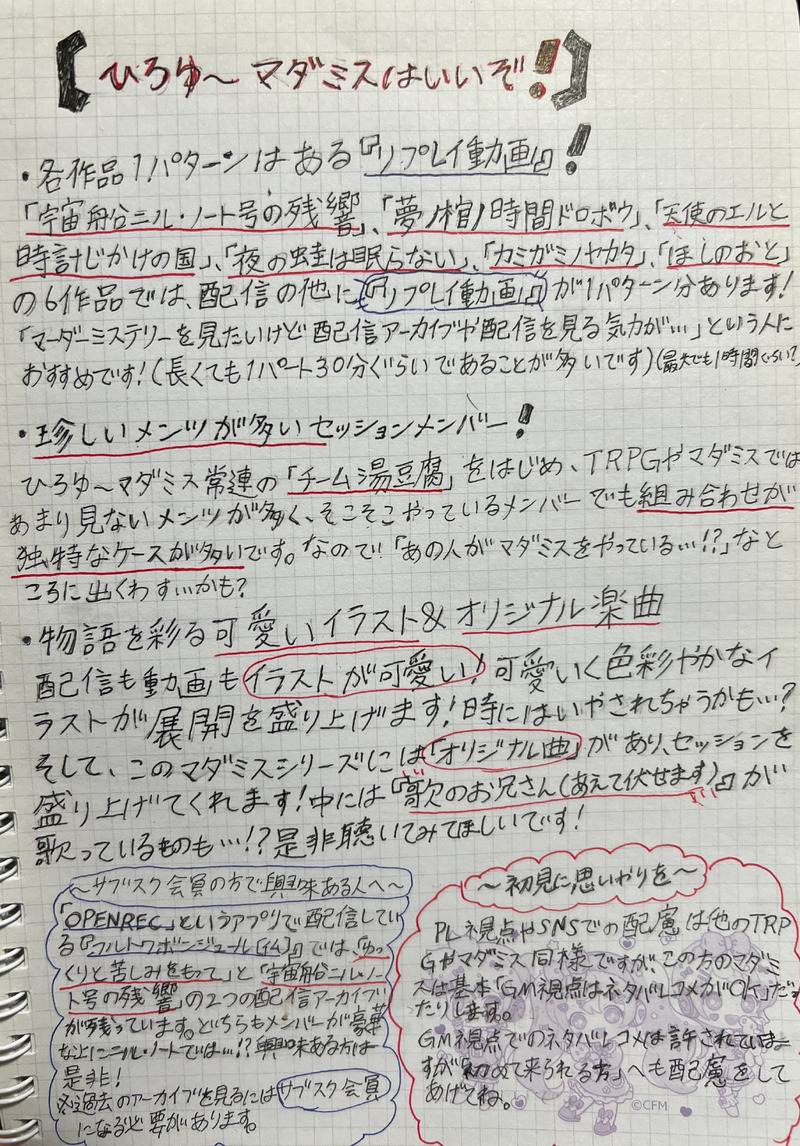 【ひろゆ〜マダミスはいいぞ!】
・各作品1パターンはある『リプレイ動画』!
「宇宙船ニル・ノート号の残響」、「夢ノ棺ノ時間ドロボウ」、「天使のエルと
時計じかけの国」、「夜の蛙は眠らない」、「カミガミノヤカタ」、「ほしのおと」
の6作品では、配信の他に『リプレイ動画』が1パターン分あります!
「マーダーミステリーを見たいけど配信アーカイブや配信を見る気力が…」という人に
おすすめです!(長くても1パート30分ぐらいであることが多いです)(最大でも1時間ぐらい?)
・珍しいメンツが多いセッションメンバー!
ひろゆ〜マダミス常連の「チーム湯豆腐」をはじめ、TRPGやマダミスでは
あまり見ないメンツが多く、そこそこやっているメンバーでも組み合わせが
独特なケースが多いです。なので「あの人がマダミスをやっている…!?」なと
ころに出くわす…かも?
・物語を彩る可愛いイラスト&オリジナル楽曲
配信も動画もイラストが可愛い!可愛いく色彩やかなイ
ラストが展開を盛り上げます!時にはいやされちゃうかも…?
そして、このマダミスシリーズには「オリジナル曲」があり、セッションを
盛り上げてくれます!中には『歌のお兄さん(あえて伏せます)』が
歌っているものも…!?是非聴いてみてほしいです!
〜サブスク会員の方で興味ある人へ〜
「OPENREC」というアプリで配信してい
る『ワルトワボンジュール(仏)』では、「ゆっ
くりと苦しみをもって」と「宇宙船ニル・ノー
ト号の残響」の2つの配信アーカイブ
が残っています。どちらもメンバーが豪華
な上にニル・ノートでは…!?興味ある方は
是非!
※過去のアーカイブを見るにはサブスク会員
になる必要があります。
〜初見に思いやりを〜
PL視点やSNSでの配慮は他のTRP
Gやマダミス同様ですが、この方のマダミ
スは基本「GM視点はネタバレコメがOK」だっ
たりします。
GM視点でのネタバレコメは許されていま
すが「初めて来られる方」へも配慮をして
あげてね。
©CFM